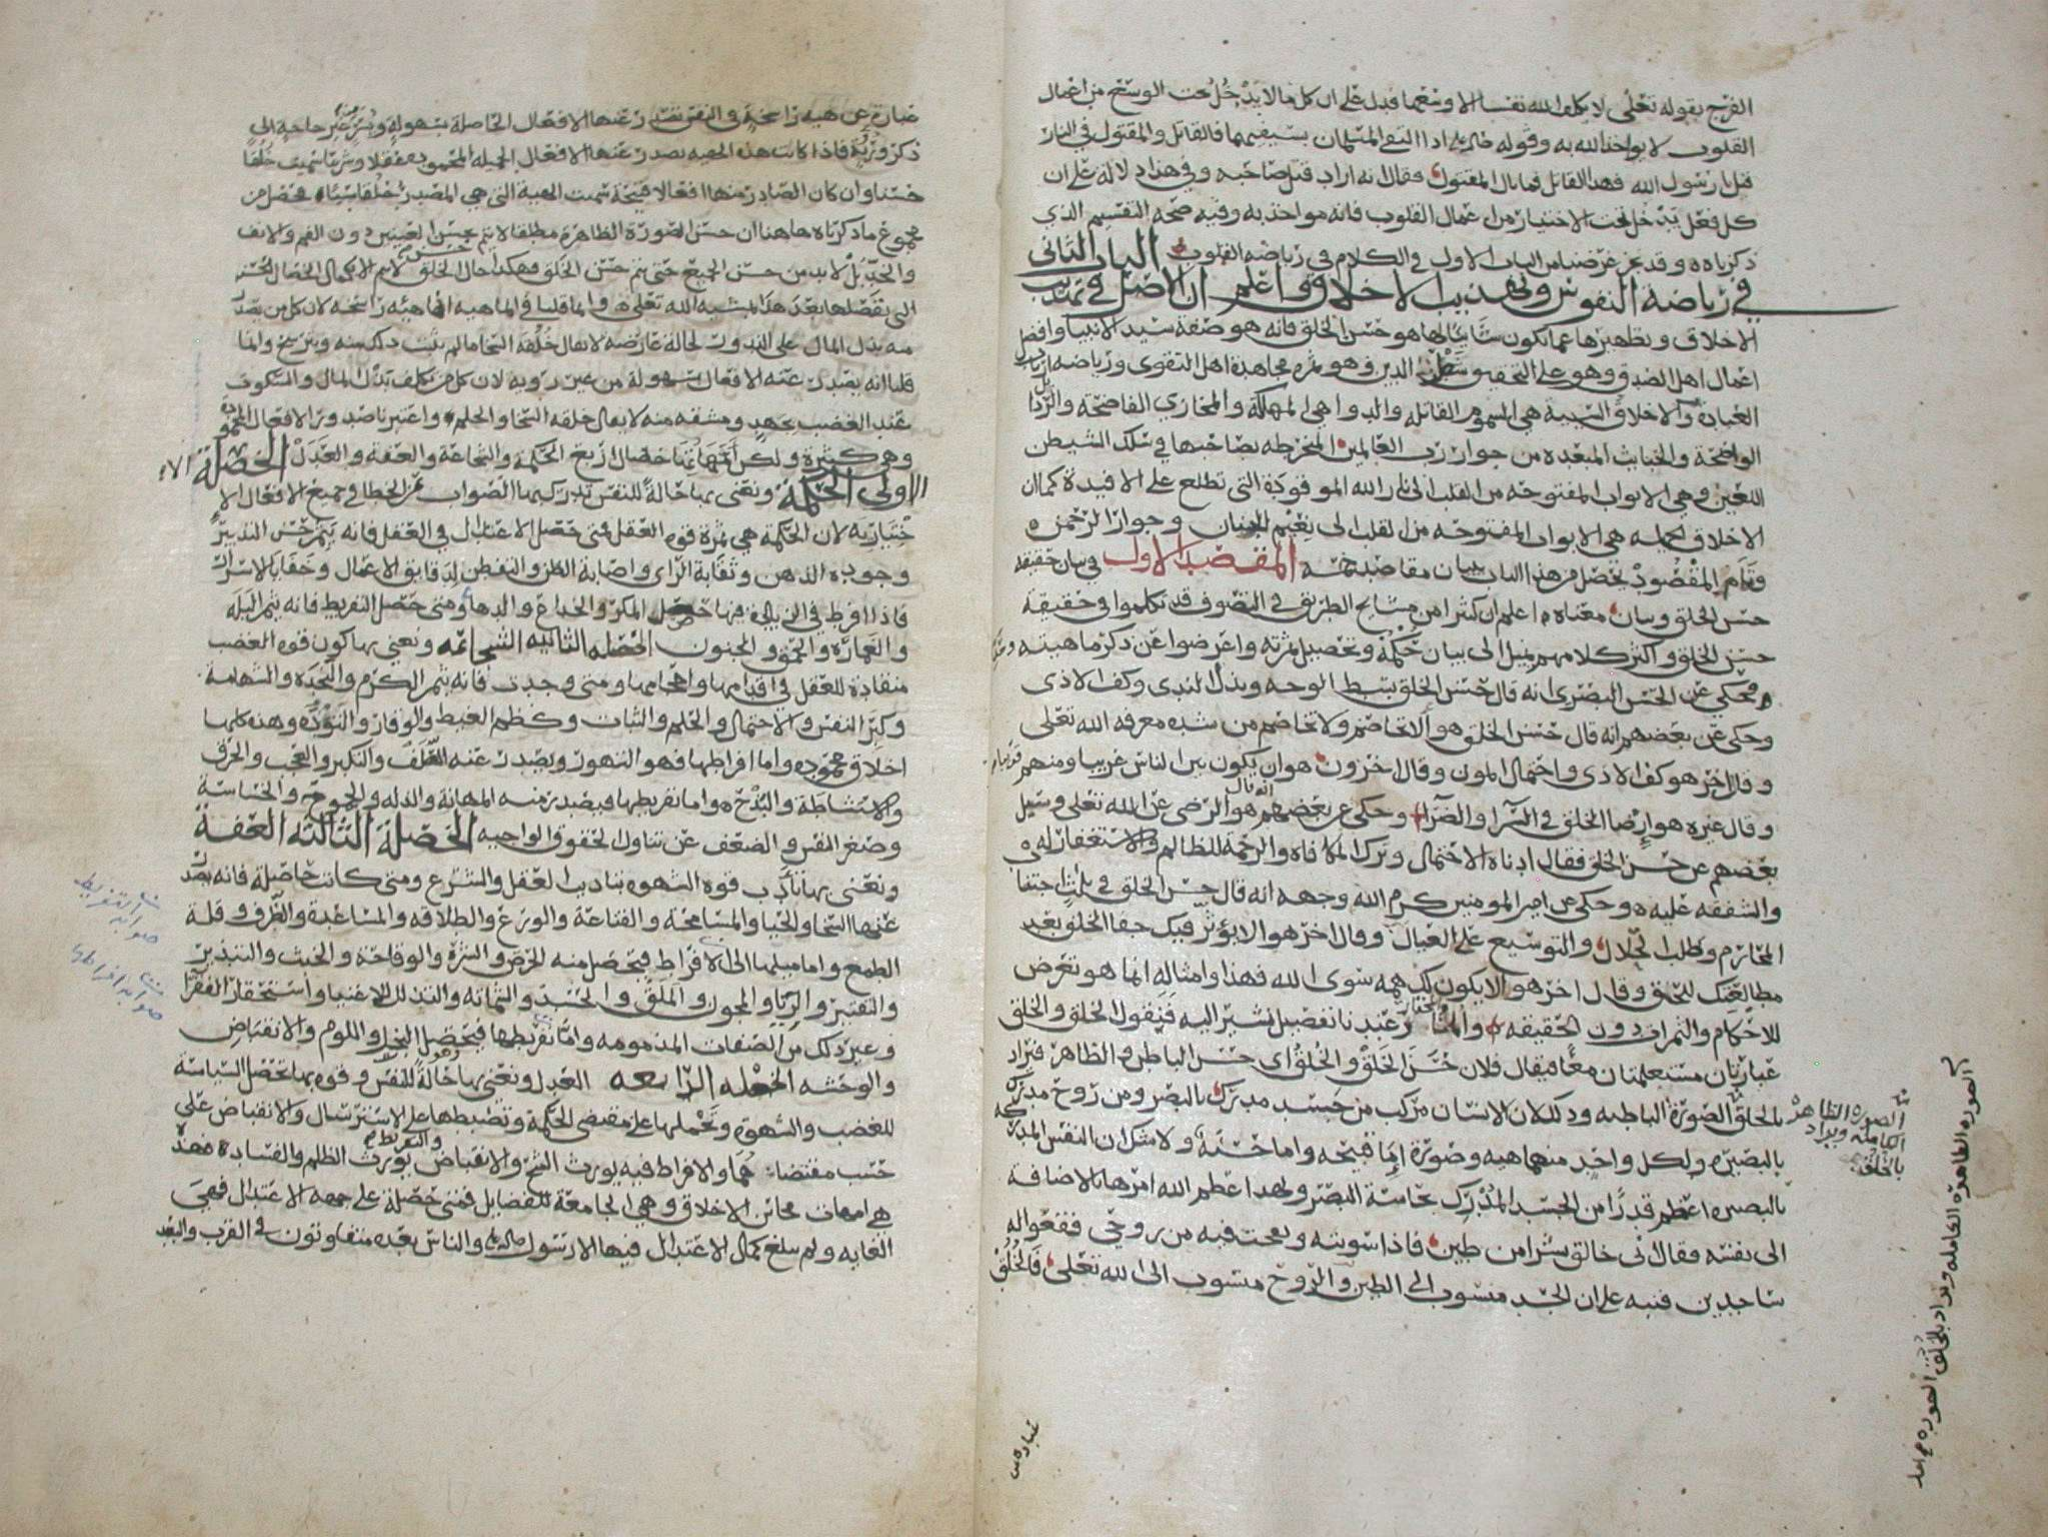 الفرج بقوله تعلى لا يكلف الله نفسا الا وسعها فدل على ان كل ما لا يدخل تحت الوسع من اعمال
القلوب لا يواخذ الله به وقوله اذا التقى المسلمان بسيفيهما فالقاتل والمقتول في النار
قيل يا رسول الله فهذا القاتل فما بال المقتول فقال انه اراد قتل صاحبه وفي هذا دلالة على ان
كل فعل يدخل تحت الاختيار من اعمال القلوب فانه مواخذ به وفيه صحة التقسيم الذي
ذكرناه وقد نجز غرضنا من الباب الاول في الكلام في رياضة القلوب الباب الثاني
في رياضة النفوس وتهذيب الاخلاق واعلم ان الاصل في تهذيب
الاخلاق وتطهيرها عما يكون شاينا لها هو حسن الخلق فانه هو صفة سيد الانبيا وافضل
اعمال اهل الصدق وهو على التحقيق شطر الدين وهو ثمرة مجاهدة اهل التقوى ورياضة ارباب
العبادة والاخلاق السيئة هي السموم القاتله والدواهي المهلكة والمخازي الفاضحة والرذايل
الواضحة والخبايث المبعده من جوار رب العالمين المنخرطه بصاحبها في سلك الشيطن
اللعين وهي الابواب المفتوحه من القلب الى نار الله الموقودة التي تطلع على الافيدة كما ان
الاخلاق الجميله هي الابواب المفتوحه من القلب الى نعيم الجنان وجوار الرحمن
وتمام المقصود يحصل من هذا الباب ببيان مقاصد خمسه المقصد الاول في بيان حقيقة
حسن الخلق وبيان معناه اعلم ان كثيرا من مشايخ الطريق في التصوف قد تكلموا في حقيقة
حسن الخلق واكثر كلامهم يميل الى بيان حكمه وتحصيل ثمرته واعرضوا عن ذكر ماهيته
فحكي عن الحسن البصري انه قال حسن الخلق بسط الوجه وبذل الندى وكف الاذى
وحكي عن بعضهم انه قال حسن الخلق هو الا تخاصم ولا تخاصم من شدة معرفة الله تعلى
وقال اخر هو كف الاذى واحتمال المون وقال اخرون هو ان يكون من الناس قريبا ومنهم
وقال غيره هو ارضا الخلق في السرا والضرا وحكي عن بعضهم انه قال هو الرضى عن الله تعلى وسيل
بعضهم عن حسن الخلق فقال ادناه الاحتمال وترك المكافاه والرحمة للظالم والاستغفار له
والشفقه عليه وحكي عن امير المومنين كرم الله وجهه انه قال حسن الخلق في ثلاث اجتناب
المحارم وطلب الحلال والتوسيع على العيال وقال اخر هو الا يؤثر فيك جفا الخلق بعد
مطالعتك للحق وقال اخر هو الا يكون لك همه سوى الله فهذا وامثاله انما هو تعرض
للاحكام والثمرات دون الحقيقه والمختار عندنا تفصيل نشير اليه فنقول الخلق والخلق
عبارتان مستعملتان معا فيقال فلان حسن الخلق والخلق اي حسن الباطن والظاهر فيراد
بالخلق الصورة الباطنه وذلك لان الانسان مركب من جسد مدرك بالبصر ومن روح مدركة
بالبصيره ولكل واحد منهما هيه وصورة اما قبيحه واما حسنه ولا شك ان النفس المدركة
بالبصيره اعظم قدرا من الجسد المدرك بحاسة البصر ولهذا عظم الله امرها بالاضافة
الى نفسه فقال اني خالق بشرا من طين فاذا سويته ونفخت فيه من روحي فقعوا له
ساجدين فنبه على ان الجسد منسوب الى الطين والروح منسوب الى الله تعلى فالخلق
الصورة الظاهرة
الكامنه ويراد
بالخلق
الصورة الظاهرة الكامله ويراد بالخلق الصوره
عبارة
عبارة عن هيه راسخة في النفس تصدر عنها الافعال الحاصلة بسهولة ويسر من غير حاجه الى
فكر ورويه فاذا كانت هذه الهيه تصدر عنها الافعال الجميله المحموده عقلا وشرعا سميت خلقا
حسنا وان كان الصادر منها افعالا قبيحة سميت الهيه التي هي المصدر خلقا سيئا فحصل من
مجموع ما ذكرناه هاهنا ان حسن الصورة الظاهرة مطلقا لا يتم بحسن العينين دون الفم والانف
والخد بل لا بد من حسن الجميع حتى يتم حسن الخلق وهكذا حال الخلق لا يتم الا بكمال الخصال الحسنه
التي نفصلها بعد هذا بمشيه الله تعلى وانما قلنا في الماهيه انها هيئه راسخه لان كل من يصدر
منه بذل المال على الندور لحالة عارضه لا يقال خلقه السخا ما لم يثبت ذلك منه ويرسخ وانما
قلنا انه يصدر عنه الافعال بسهولة من غير رويه لان كل من تكلف بذل المال والسكوت
عند الغضب بجهد ومشقه منه لا يقال خلقه السخا والحلم
وهي كثيرة ولكن امهاتها خصال اربع الحكمة والشجاعة والعفة والعدل الخصلة
الاولى الحكمة ونعني بها حالة للنفس تدرك بها الصواب من الخطا في جميع الافعال الا
ختياريه لان الحكمة هي ثمرة قوة العقل فمتى حصل الاعتدال في العقل فانه يثمر حسن التدبير
وجودة الذهن وثقابة الراى واصابة الظن والتفطن لدقايق الاعمال وخفايا الاسرار
فاذا افرط في الزيادة فيها حصل المكر والخداع والدها ومتى حصل التفريط فانه يثمر البله
والغماره والحمق والجنون الخصله الثانيه الشجاعه ونعني بها كون قوة الغضب
منقادة للعقل في اقدامها واحجامها ومتى وجدت فانه يثمر الكرم والنجده والشهامة
وكبر النفس والاحتمال والحلم والثبات وكظم الغيظ والوقار والتؤدة وهذه كلها
اخلاق محموده واما افراطها فهو التهور ويصدر عنه الصلف والتكبر والعجب والخرق
والاستشاطة والبذخ واما تفريطها فيصدر منه المهانة والذله والخساسة
وصغر النفس والضعف عن تناول الحقوق الواجبه الخصلة الثالثة العفة
ونعني بها تأدب قوة الشهوه بتاديب العقل والشرع ومتى كانت حاصلة فانه يصدر
عنها السخا والحيا والمسامحة والقناعة والورع والطلاقه والمساعدة والظرف وقلة
الطمع واما ميلها الى الافراط فيحصل منه الحرص والشره والوقاحة والخبث والتبذير
والتقتير والريا والمجون والملق والحسد والشماته والتذلل للاغنيا واستحقار الفقرا
وغير ذلك من الصفات المذمومه واما تفريطها فيحصل البخل واللوم والانقباض
والوحشه الخصله الرابعه العدل ونعني بها حالة للنفس وقوه بها تحصل السياسة
للغضب والشهوه وتحملها على مقتضى الحكمة وتضبطها على الاسترسال والانقباض على
حسب مقتضاهما والافراط فيه يورث الشح والانقباض والتفريط يورث الظلم والفساد فهذه
هي امهات محاسن الاخلاق وهي الجامعة للفضايل فمتى حصلة على جهه الاعتدال فهي
الغايه ولم يبلغ كمال الاعتدال فيها الا رسول والناس بعده متفاوتون في القرب والبعد
صوابه التفريط
صوابه افراطها